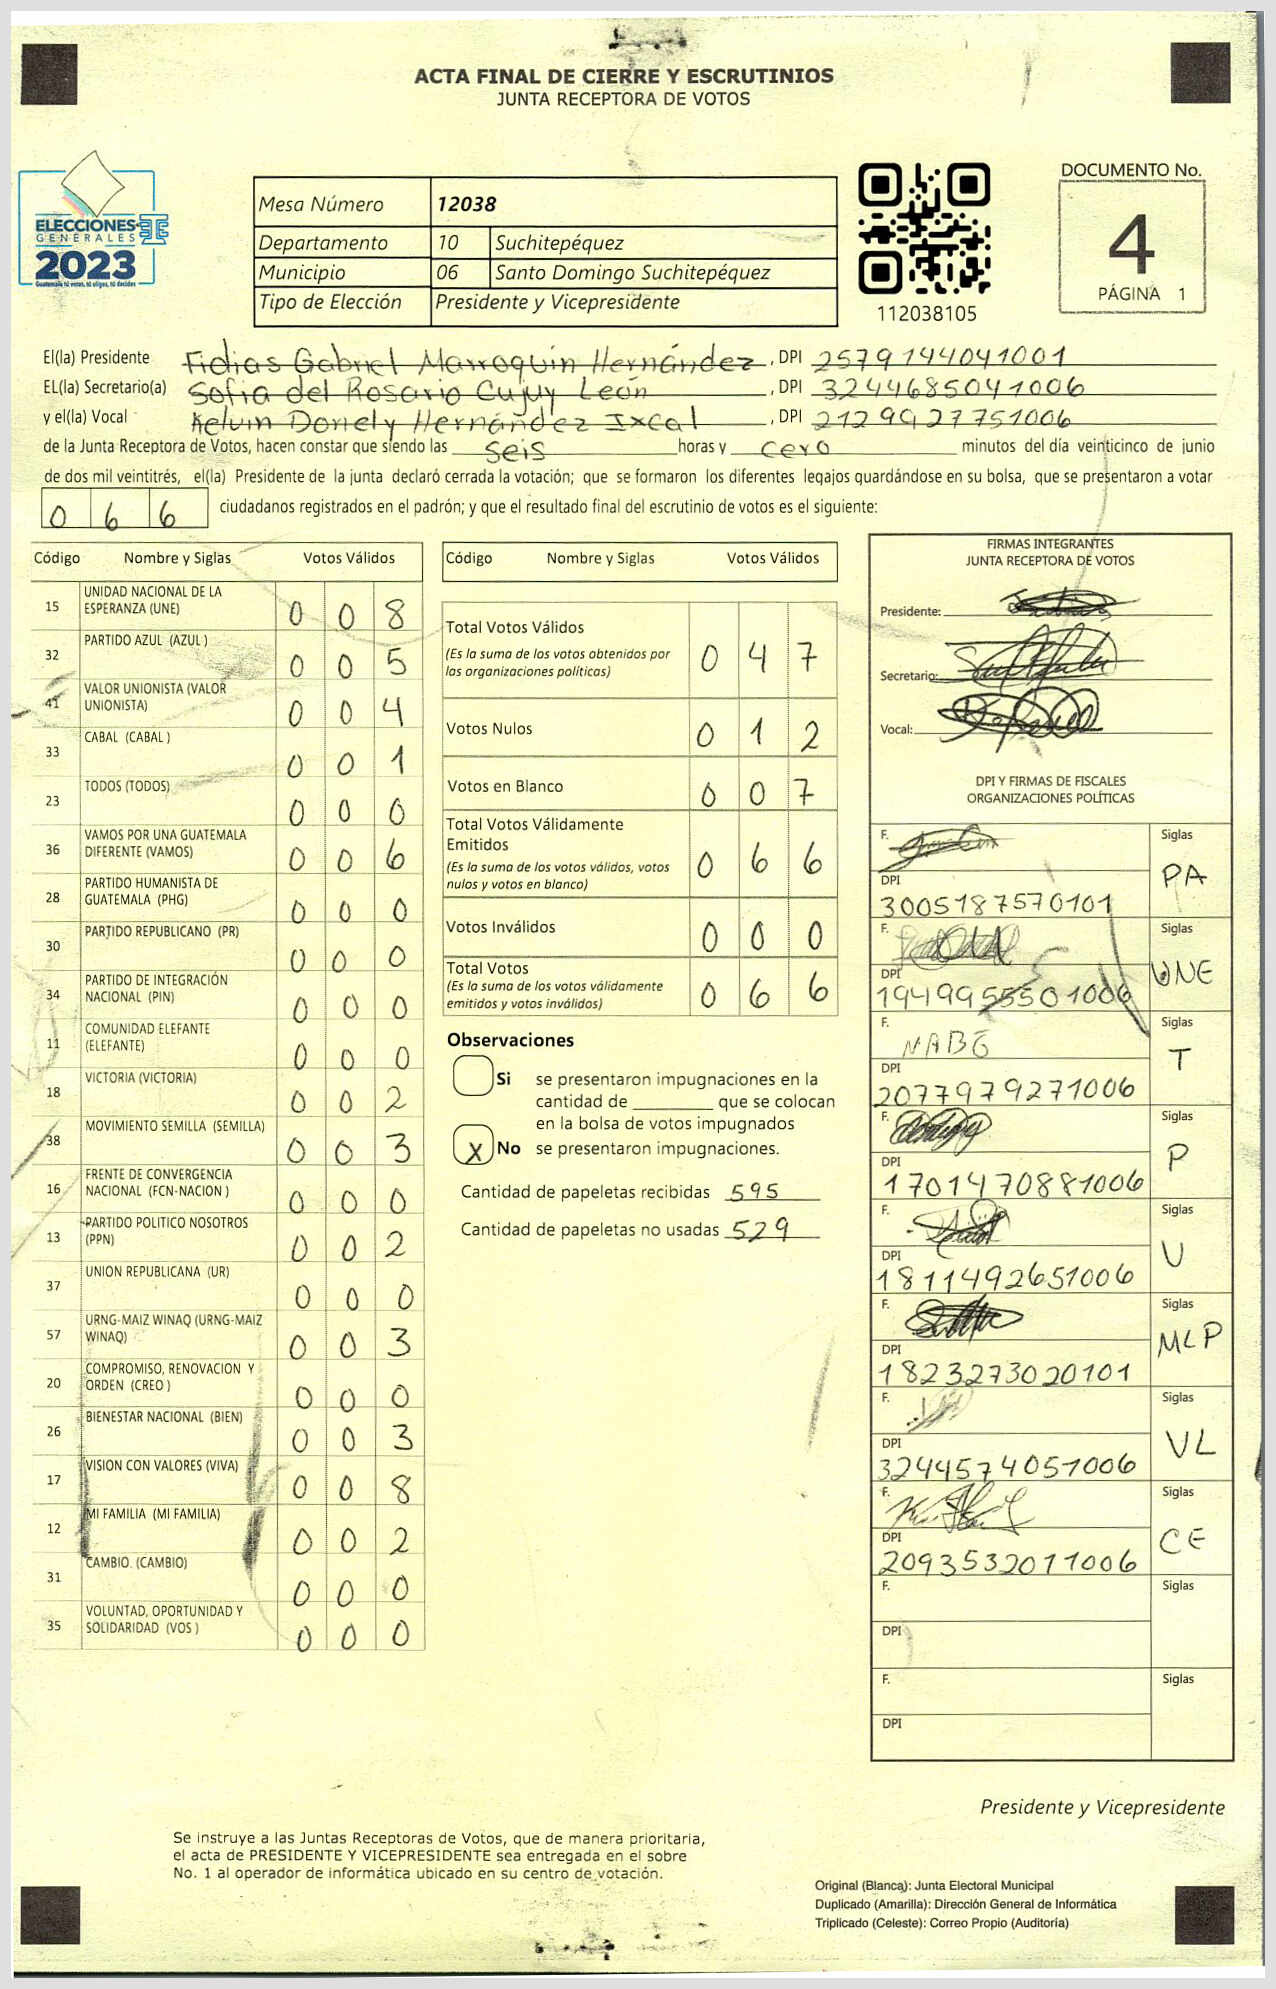 ACTA FINAL DE CIERRE Y ESCRUTINIOS
JUNTA RECEPTORA DE VOTOS
ELECCIONES
GENERALES
2023
Guatemala tú votas, tú eliges, tú decides
Mesa Número 12038
Departamento 10 Suchitepéquez
Municipio 06 Santo Domingo Suchitepéquez
Tipo de Elección Presidente y Vicepresidente
112038105
DOCUMENTO No.
4
PÁGINA 1
El(la) Presidente Fidias Gabriel Marroquín Hernández, DPI 2579144041001
EL(la) Secretario(a) Sofia del Rosario Cujuy León, DPI 3244685041006
y el(la) Vocal Kelvin Doniely Hernández Ixcal, DPI 2129927751006
de la Junta Receptora de Votos, hacen constar que siendo las seis horas y cero minutos del día veinticinco de junio
de dos mil veintitrés, el(la) Presidente de la junta declaró cerrada la votación; que se formaron los diferentes legajos guardándose en su bolsa, que se presentaron a votar
0 6 6 ciudadanos registrados en el padrón; y que el resultado final del escrutinio de votos es el siguiente:
Código Nombre y Siglas Votos Válidos
15 UNIDAD NACIONAL DE LA
ESPERANZA (UNE) 0 0 8
32 PARTIDO AZUL (AZUL ) 0 0 5
41 VALOR UNIONISTA (VALOR
UNIONISTA) 0 0 4
33 CABAL (CABAL ) 0 0 1
23 TODOS (TODOS) 0 0 0
36 VAMOS POR UNA GUATEMALA
DIFERENTE (VAMOS) 0 0 6
28 PARTIDO HUMANISTA DE
GUATEMALA (PHG) 0 0 0
30 PARTIDO REPUBLICANO (PR) 0 0 0
34 PARTIDO DE INTEGRACIÓN
NACIONAL (PIN) 0 0 0
11 COMUNIDAD ELEFANTE
(ELEFANTE) 0 0 0
18 VICTORIA (VICTORIA) 0 0 2
38 MOVIMIENTO SEMILLA (SEMILLA) 0 0 3
16 FRENTE DE CONVERGENCIA
NACIONAL (FCN-NACION ) 0 0 0
13 PARTIDO POLITICO NOSOTROS
(PPN) 0 0 2
37 UNION REPUBLICANA (UR) 0 0 0
57 URNG-MAIZ WINAQ (URNG-MAIZ
WINAQ) 0 0 3
20 COMPROMISO, RENOVACION Y
ORDEN (CREO ) 0 0 0
26 BIENESTAR NACIONAL (BIEN) 0 0 3
17 VISION CON VALORES (VIVA) 0 0 8
12 MI FAMILIA (MI FAMILIA) 0 0 2
31 CAMBIO. (CAMBIO) 0 0 0
35 VOLUNTAD, OPORTUNIDAD Y
SOLIDARIDAD (VOS ) 0 0 0
Código Nombre y Siglas Votos Válidos
Total Votos Válidos
(Es la suma de los votos obtenidos por
las organizaciones políticas) 0 4 7
Votos Nulos 0 1 2
Votos en Blanco 0 0 7
Total Votos Válidamente
Emitidos
(Es la suma de los votos válidos, votos
nulos y votos en blanco) 0 6 6
Votos Inválidos 0 0 0
Total Votos
(Es la suma de los votos válidamente
emitidos y votos inválidos) 0 6 6
Observaciones
Si se presentaron impugnaciones en la
cantidad de ________ que se colocan
en la bolsa de votos impugnados
X No se presentaron impugnaciones.
Cantidad de papeletas recibidas 595
Cantidad de papeletas no usadas 529
FIRMAS INTEGRANTES
JUNTA RECEPTORA DE VOTOS
Presidente:
Secretario:
Vocal:
DPI Y FIRMAS DE FISCALES
ORGANIZACIONES POLÍTICAS
F. Siglas
DPI PA
3005187570101
F. Siglas
DPI UNE
1949955501006
F. Siglas
DPI T
2077979271006
F. Siglas
DPI P
1701470881006
F. Siglas
DPI U
1811492651006
F. Siglas
DPI MLP
1823273020101
F. Siglas
DPI VL
3244574051006
F. Siglas
DPI CE
2093532011006
F. Siglas
DPI
F. Siglas
DPI
Presidente y Vicepresidente
Se instruye a las Juntas Receptoras de Votos, que de manera prioritaria,
el acta de PRESIDENTE Y VICEPRESIDENTE sea entregada en el sobre
No. 1 al operador de informática ubicado en su centro de votación.
Original (Blanca): Junta Electoral Municipal
Duplicado (Amarilla): Dirección General de Informática
Triplicado (Celeste): Correo Propio (Auditoría)